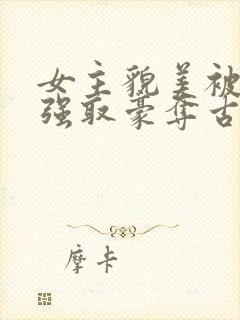 女主貌美被
强取豪夺古
摩卡